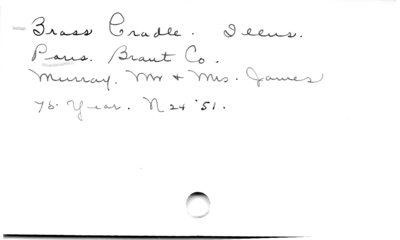 Brass Cradle. Illus.
Paris. Brant Co.
Murray. Mr & Mrs. James
75. Year. N 24 '51.